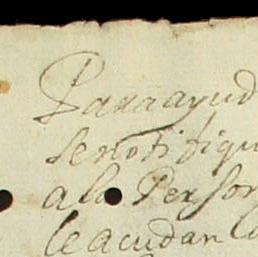 Para ayud
se notifiqu
a la Person
le acudan co